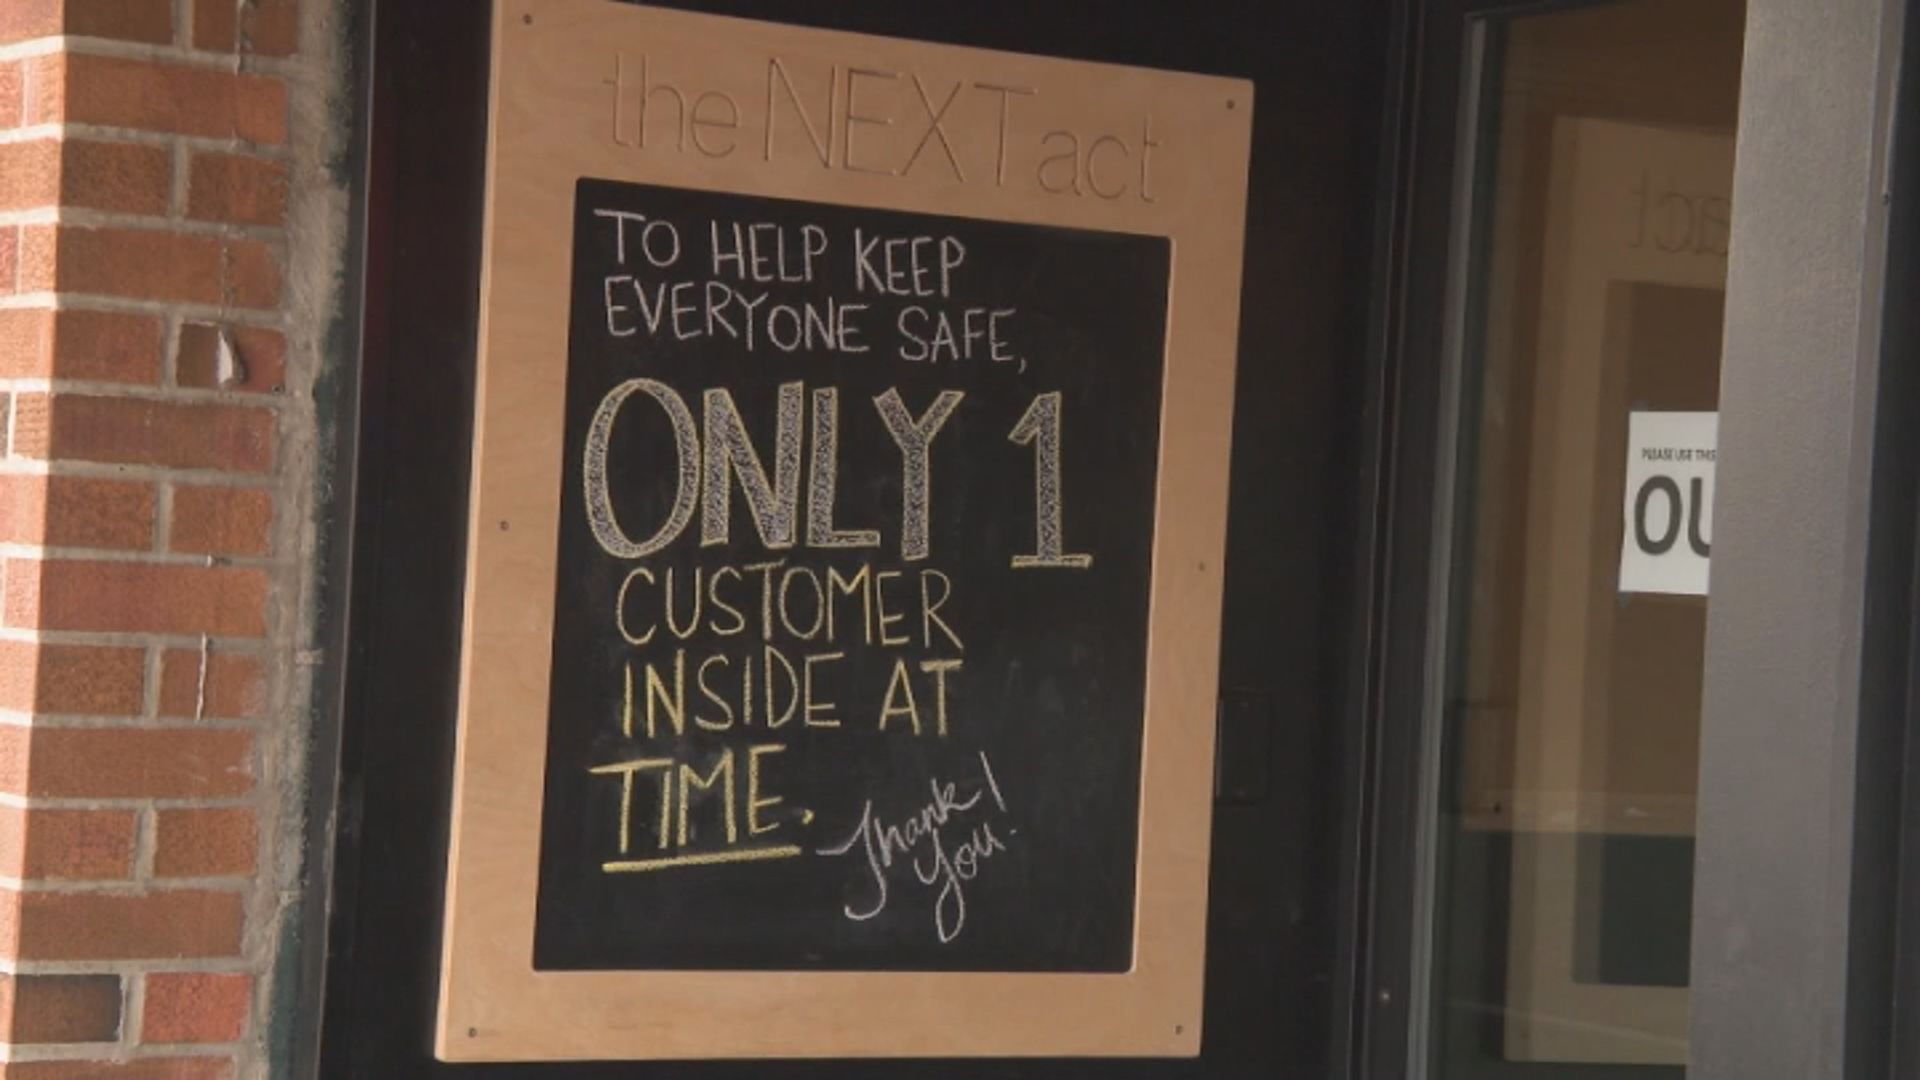 the NEXT act
TO HELP KEEP
EVERYONE SAFE,
ONLY 1
CUSTOMER
INSIDE AT
TIME.
Thank
You!
act
PLEASE USE THIS
OU